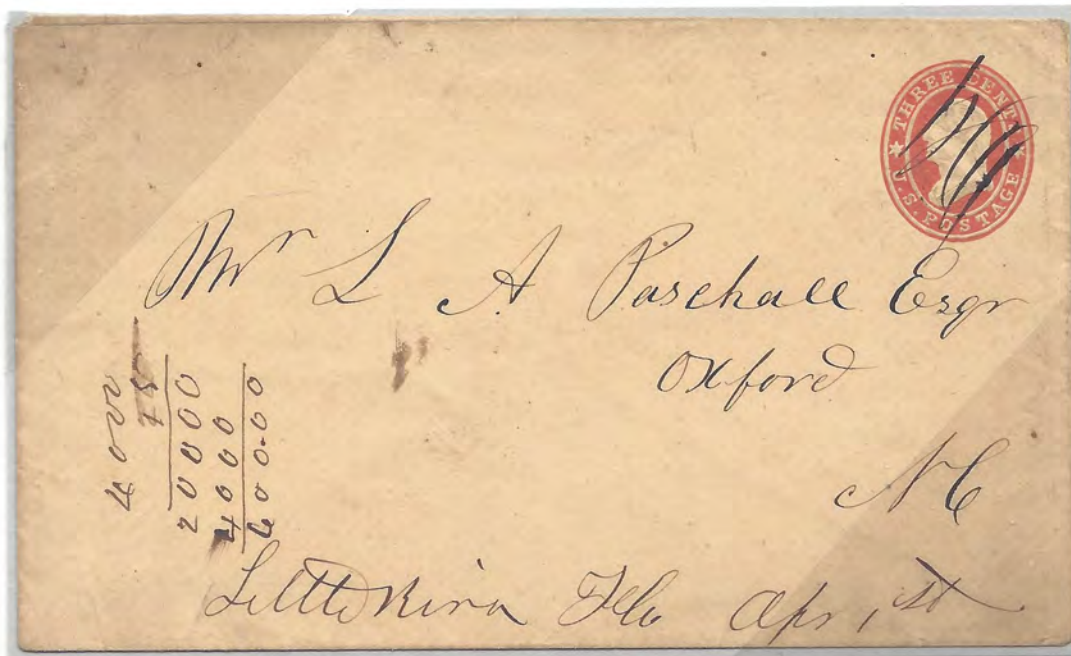 THREE CENTS
U.S. POSTAGE
Mr L A Paschall Esqr
Oxford
N C
4000
15
20000
4000
600.00
Little River Flo Apr 1st